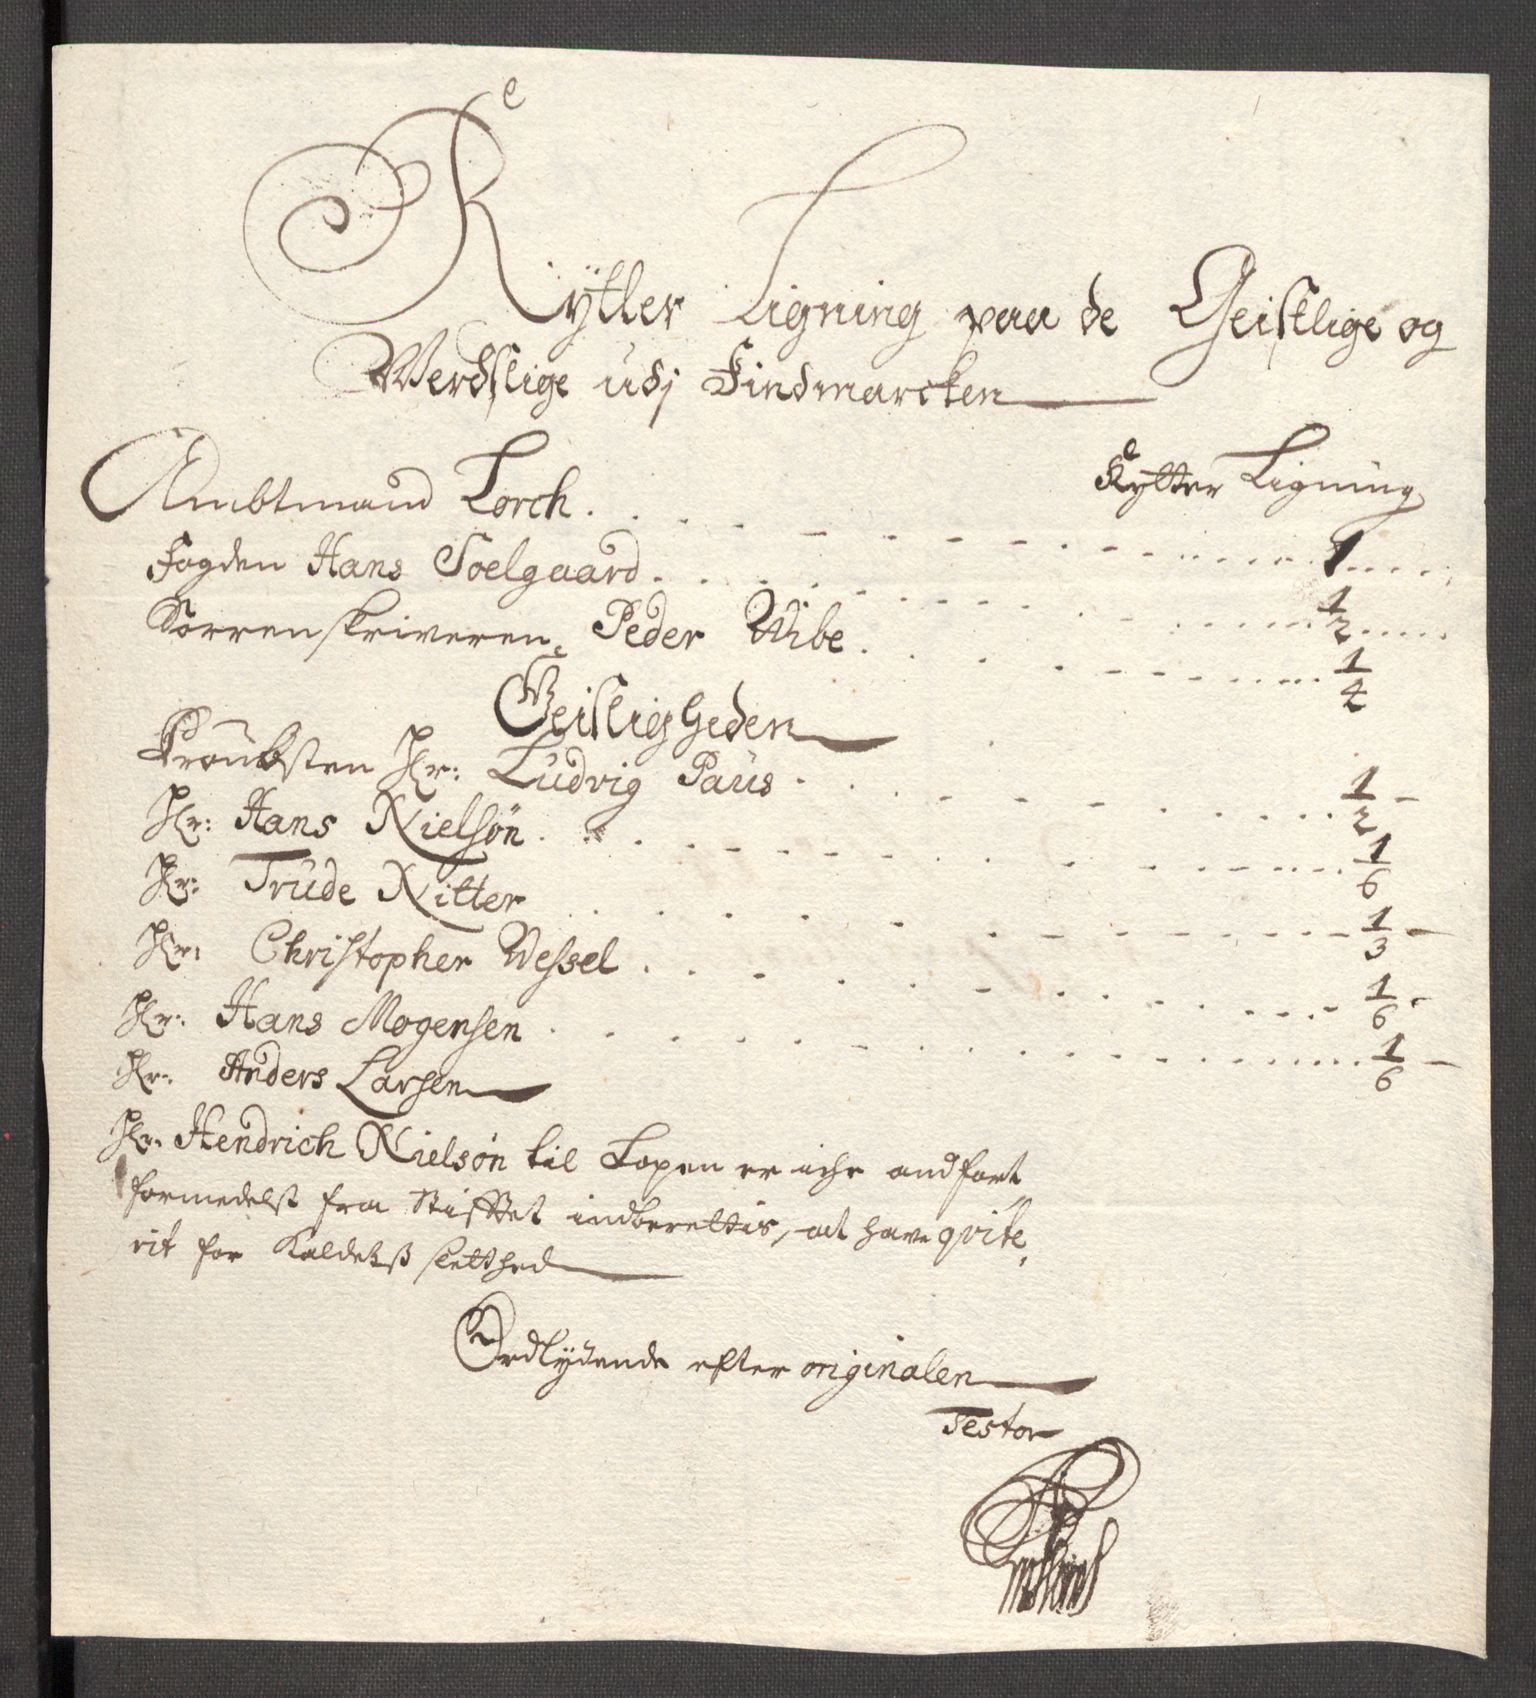 Rÿtter Ligning paa de Geistlige og
Werdslige udj Findmarcken
Rytter Ligning
Ambtmand Lorch . . . 1
Fogden Hans Soelgaard . . . 1/2
Sorrenskriveren Peder Wibe . . . 1/4
Geistligheden
Proubsten Hr: Ludvig Paus . . . 1/2 -
Hr: Hans Nielsøn . . . 1/6
Hr: Trude Nitter . . . 1/3 -
Hr: Christopher Wessel . . . 1/6 -
Hr: Hans Mogensen . . . 1/6 -
Hr: Anders Larsen
Hr: Hendrich Nielsøn til Loppen er iche andført
formedelst fra Stifftet indberettis, at have qvite,
rit for Kaldetß sletthed
Ordlydende efter originalen
Testor